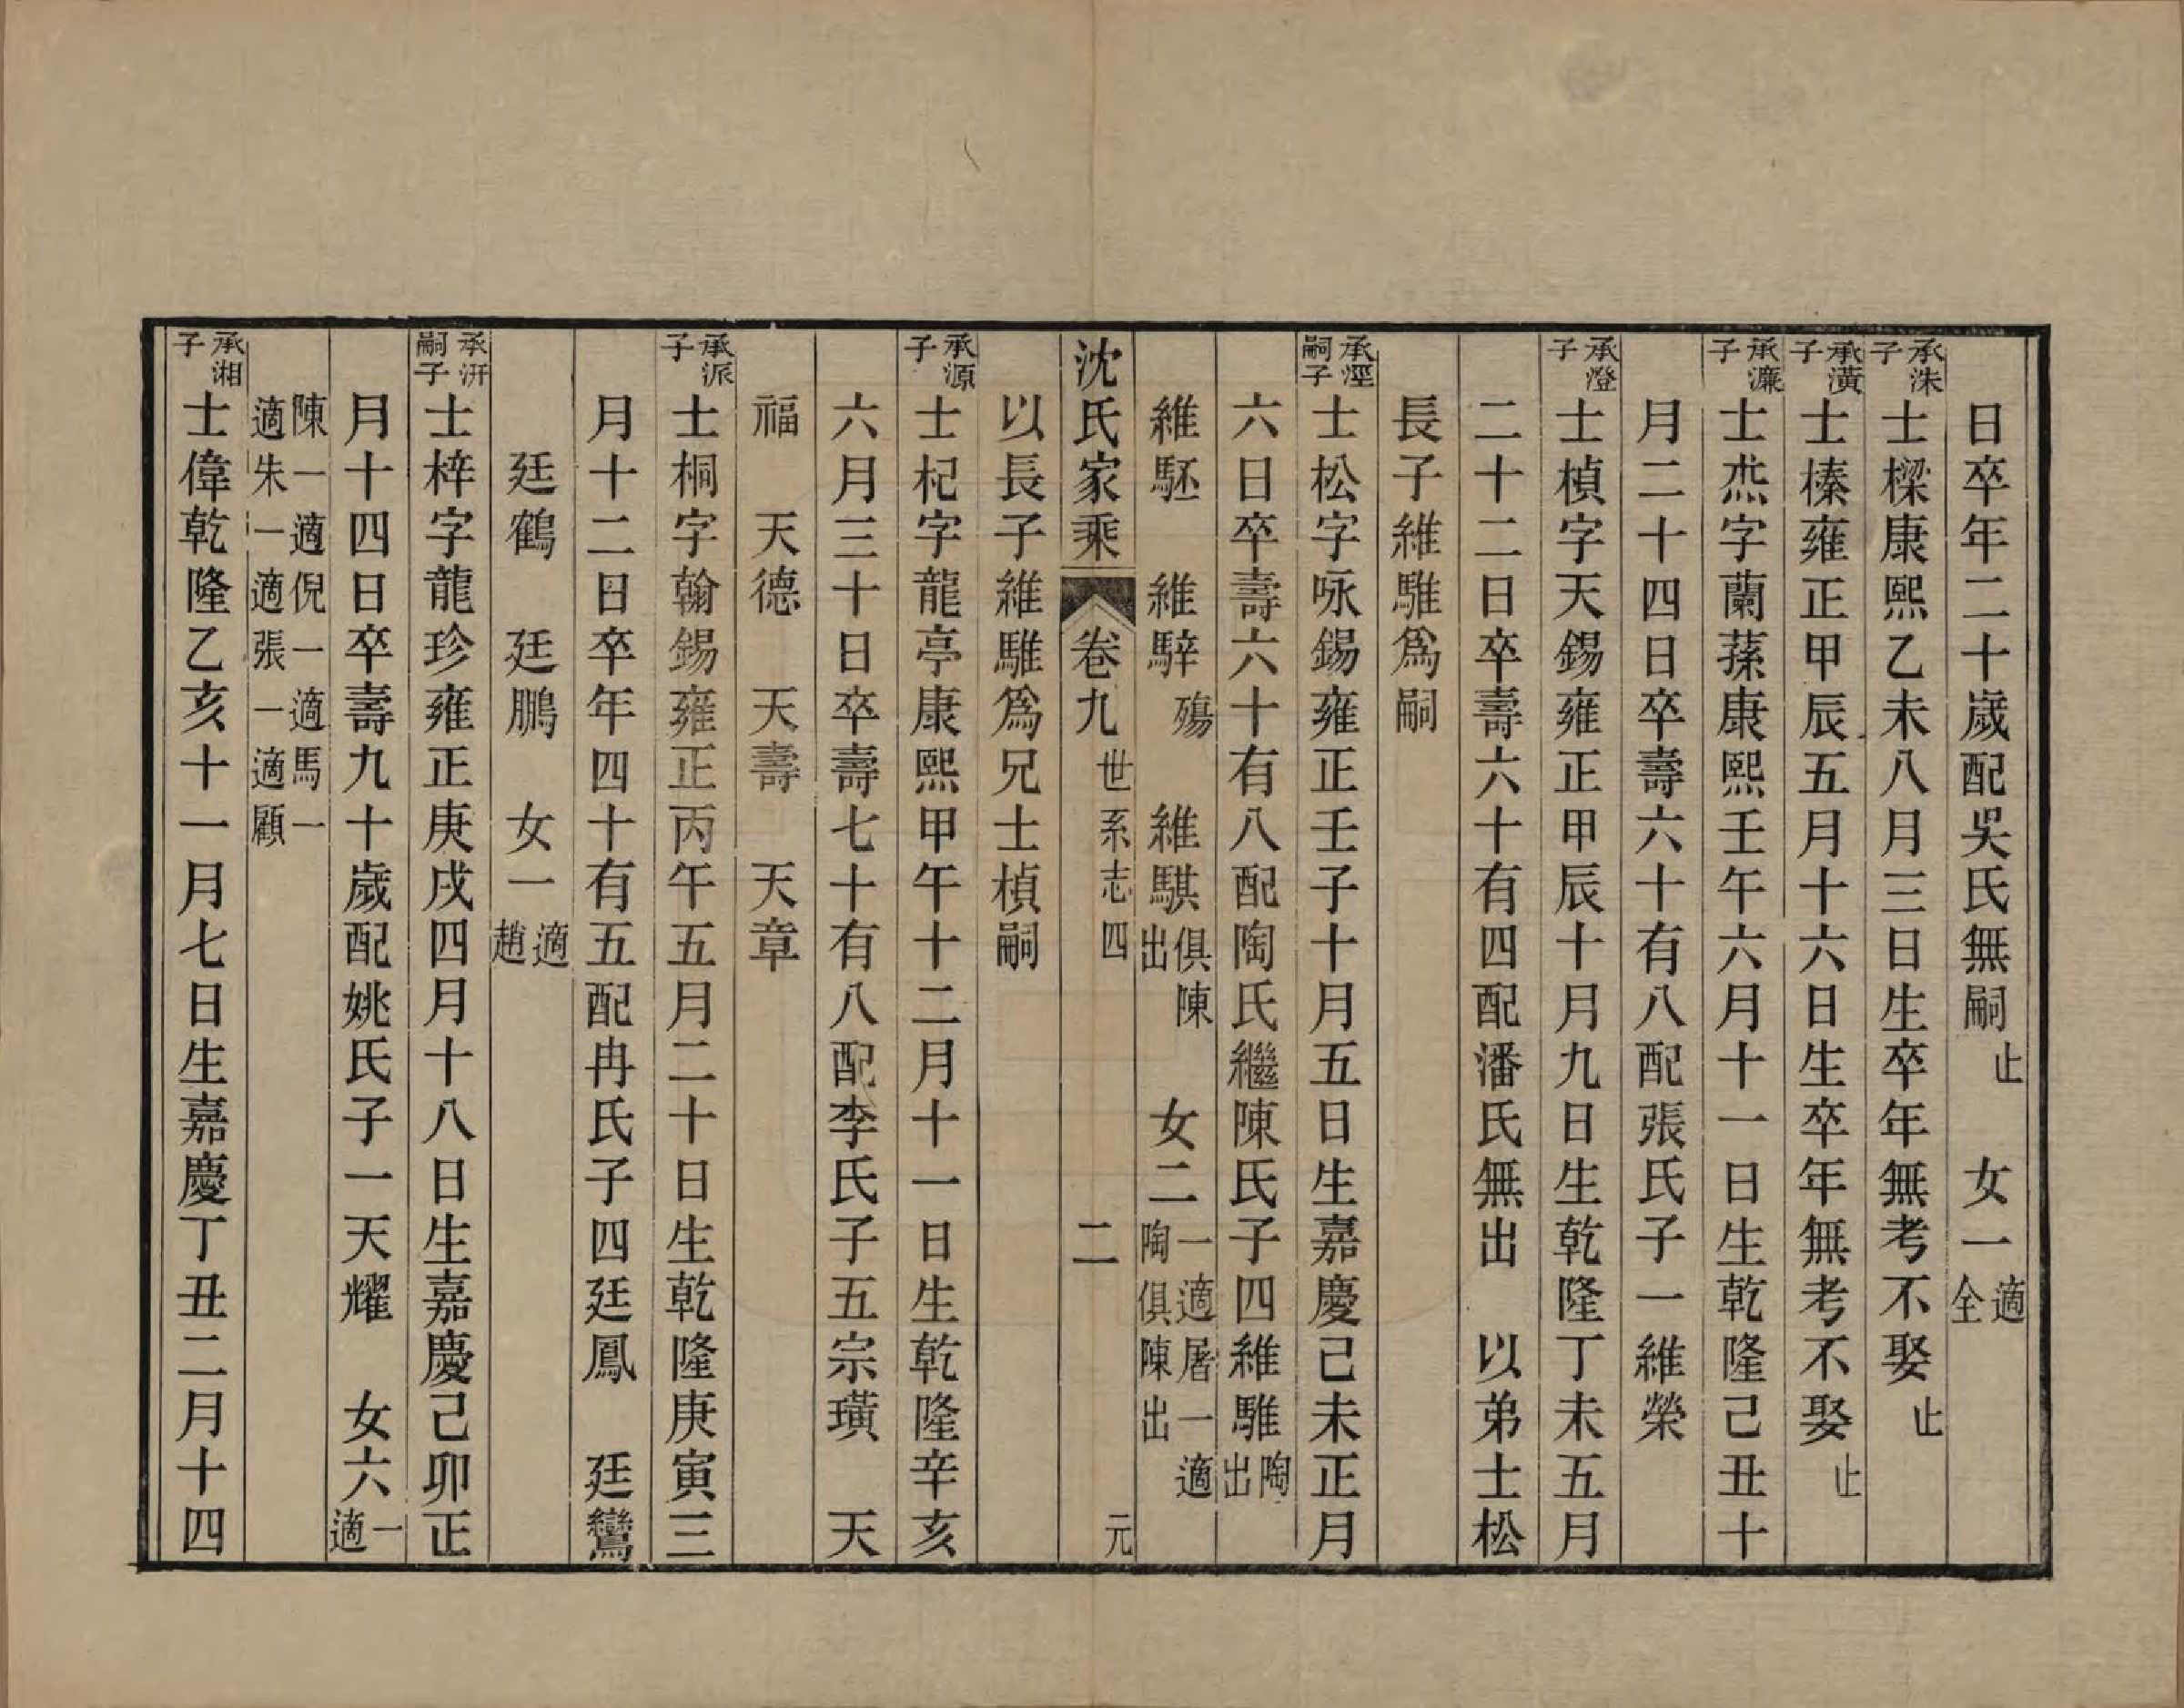 日卒年二十歲配吳氏無嗣止　女一適全
承洙子　士檪康熙乙未八月三日生卒年無考不娶止
承潢子　士榛雍正甲辰五月十六日生卒年無考不娶止
承濂子　士烝字蘭蓀康熙壬午六月十一日生乾隆己丑十
月二十四日卒壽六十有八配張氏子一維榮
承澄子　士楨字天錫雍正甲辰十月九日生乾隆丁未五月
二十二日卒壽六十有四配潘氏無出　以弟士松
長子維騅爲嗣
承涇嗣子　士松字咏錫雍正壬子十月五日生嘉慶己未正月
六日卒壽六十有八配陶氏繼陳氏子四維騅陶出
維駓　維騂殤　維騏俱陳出　女二一適屠一適陶俱陳出
沈氏家乘　卷九　世系志四　二　元
以長子維騅爲兄士楨嗣
承源子　士杞字龍亭康熙甲午十二月十一日生乾隆辛亥
六月三十日卒壽七十有八配李氏子五宗璜　天
福　天德　天壽　天章
承派子　士桐字翰錫雍正丙午五月二十日生乾隆庚寅三
月十二日卒年四十有五配冉氏子四廷鳳　廷鸞
廷鶴　廷鵬　女一適趙
承汧嗣子　士梓字龍珍雍正庚戌四月十八日生嘉慶己卯正
月十四日卒壽九十歲配姚氏子一天耀　女六一適
陳一適倪一適馬一適朱一適張一適顧
承湘子　士偉乾隆乙亥十一月七日生嘉慶丁丑二月十四